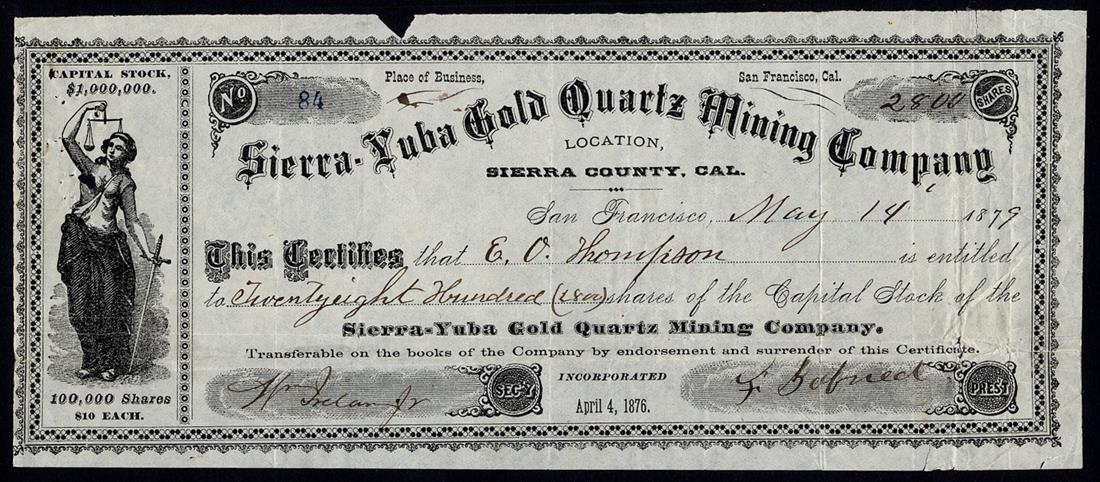 CAPITAL STOCK,
$1,000,000.
100,000 Shares
$10 EACH.
No 84
Place of Business, San Francisco, Cal.
2800 SHARES
Sierra-Yuba Gold Quartz Mining Company
LOCATION,
SIERRA COUNTY, CAL.
San Francisco, May 14 1879
This Certifies that E. O. Thompson is entitled
to Twentyeight Hundred (2800) shares of the Capital Stock of the
Sierra-Yuba Gold Quartz Mining Company.
Transferable on the books of the Company by endorsement and surrender of this Certificate.
Wm Irelan Jr SEC'Y INCORPORATED PREST
April 4, 1876.